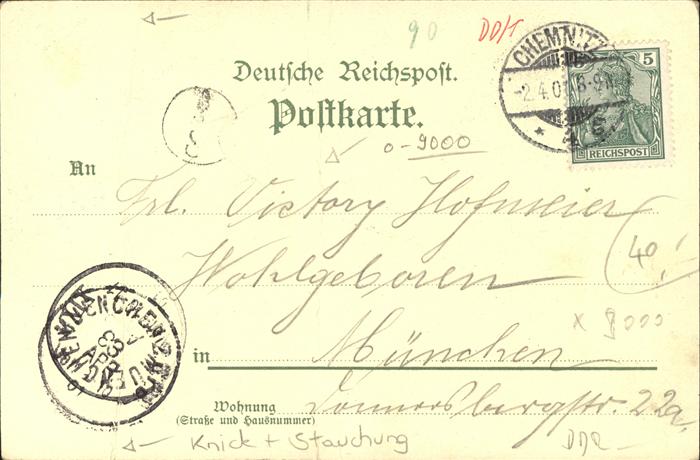 90 DD/1
CHEMNITZ
5
-2.4.01. 8-9N.
* 4 S.
REICHSPOST
Deutsche Reichspost.
Postkarte.
0-9000
An
Frl. Victory Hofmeier
Wohlgeboren
40.
x 9000
3 APR
in München
Wohnung
(Straße und Hausnummer)
Donnersbergstr. 22a.
Knick + Stauchung
DDR